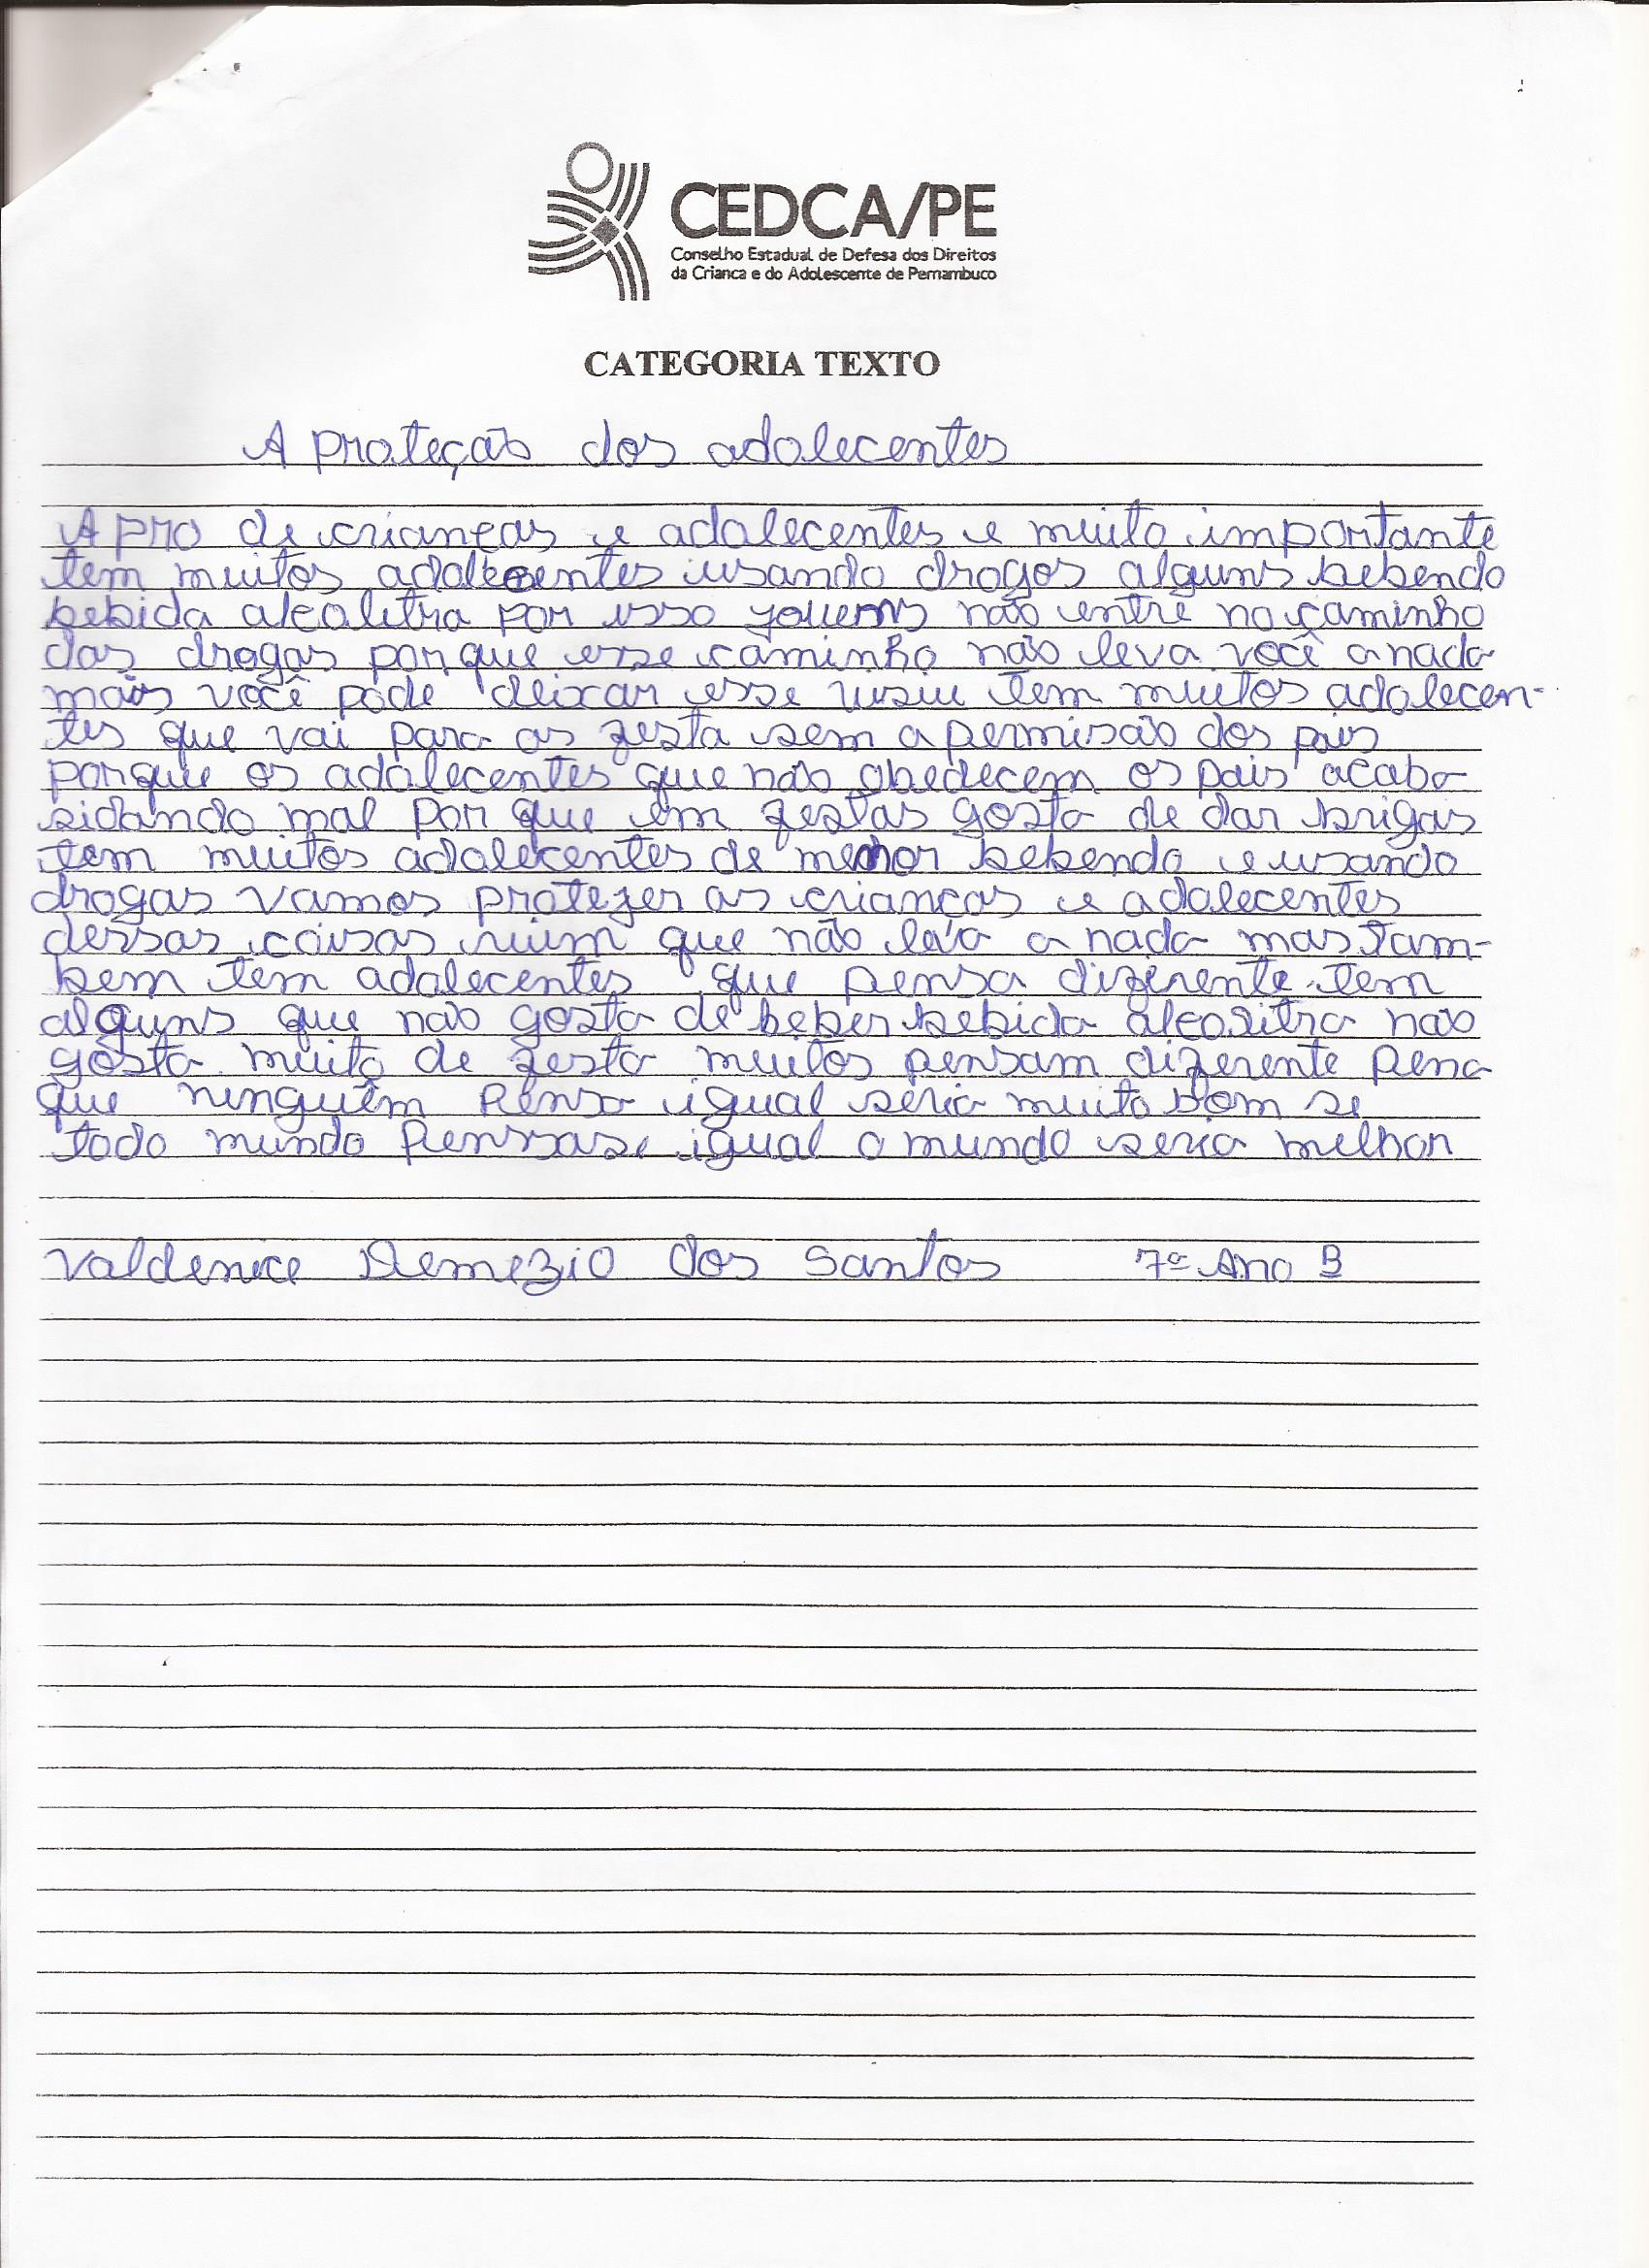 CEDCA/PE
Conselho Estadual de Defesa dos Direitos
da Crianca e do Adolescente de Pernambuco
CATEGORIA TEXTO
A proteção dos adolecentes
A pro de crianças e adolecentes e muito importante
tem muitos adolecentes usando drogos alguns bebendo
bebida alcolitra por isso jouens não entre no caminho
das drogas por que esse caminho não leva você a nada
mais você pode deixar esse usiu tem muitos adolecen-
tes que vai para as festa sem a permisão dos pais
porque os adolecentes que não obedecem os pais acaba
sidando mal por que em festas gosta de dar brigas
tem muitos adolecentes de menor bebendo e usando
drogas vamos protejer as crianças e adolecentes
dessas coisas ruim que não leva a nada mas tam-
bem tem adolecentes que pensa diferente tem
alguns que não gosta de beber bebida alcolitra não
gosta muito de festa muitos pensam diferente pena
que ninguêm pensa igual seria muito bom se
todo mundo penssase igual o mundo seria melhor
Valdenice Demezio dos Santos 7º Ano B